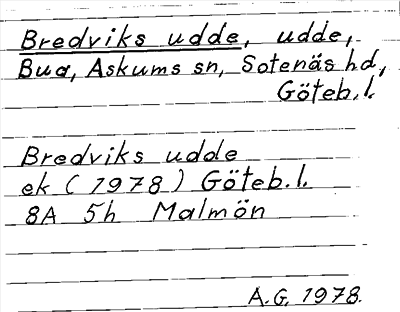 Bredviks udde, udde,
Bua, Askums sn, Sotenäs hd,
Göteb. l.
Bredviks udde
ek (1978) Göteb. l.
8A 5h Malmön
A.G. 1978.